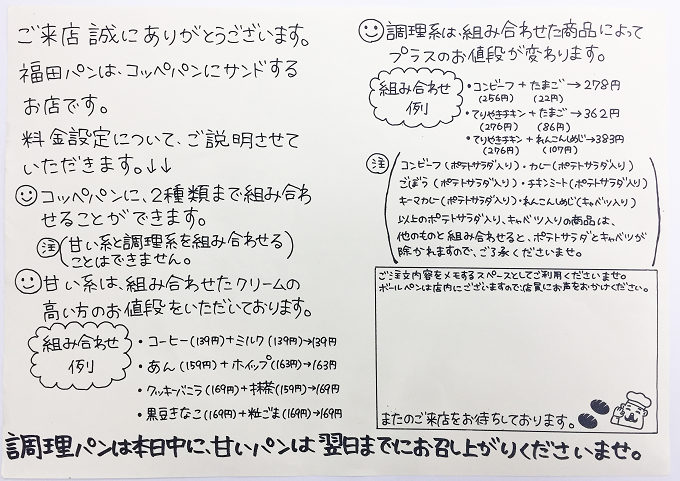 ご来店誠にありがとうございます。
福田パンは、コッペパンにサンドする
お店です。
料金設定について、ご説明させて
いただきます。↓↓
コッペパンに、2種類まで組み合わ
せることができます。
注(甘い系と調理系を組み合わせる
ことはできません。)
甘い系は、組み合わせたクリームの
高い方のお値段をいただいております。
組み合わせ
例
・コーヒー(139円)+ミルク(139円)→139円
・あん(159円)+ホイップ(163円)→163円
・クッキーバニラ(169円)+抹茶(159円)→169円
・黒豆きなこ(169円)+粒ごま(169円)→169円
調理系は、組み合わせた商品によって
プラスのお値段が変わります。
組み合わせ
例
・コンビーフ+たまご→278円
(256円) (22円)
・てりやきチキン+たまご→362円
(276円) (86円)
・てりやきチキン+れんこんしめじ→383円
(276円) (107円)
注
コンビーフ(ポテトサラダ入り)・カレー(ポテトサラダ入り)
ごぼう(ポテトサラダ入り)・チキンミート(ポテトサラダ入り)
キーマカレー(ポテトサラダ入り)・れんこんしめじ(キャベツ入り)
以上のポテトサラダ入り、キャベツ入りの商品は、
他のものと組み合わせると、ポテトサラダとキャベツが
除かれますので、ご了承くださいませ。
ご注文内容をメモするスペースとしてご利用くださいませ。
ボールペンは店内にございますので、店員にお声をおかけください。
またのご来店をお待ちしております。
調理パンは本日中に、甘いパンは翌日までにお召し上がりくださいませ。